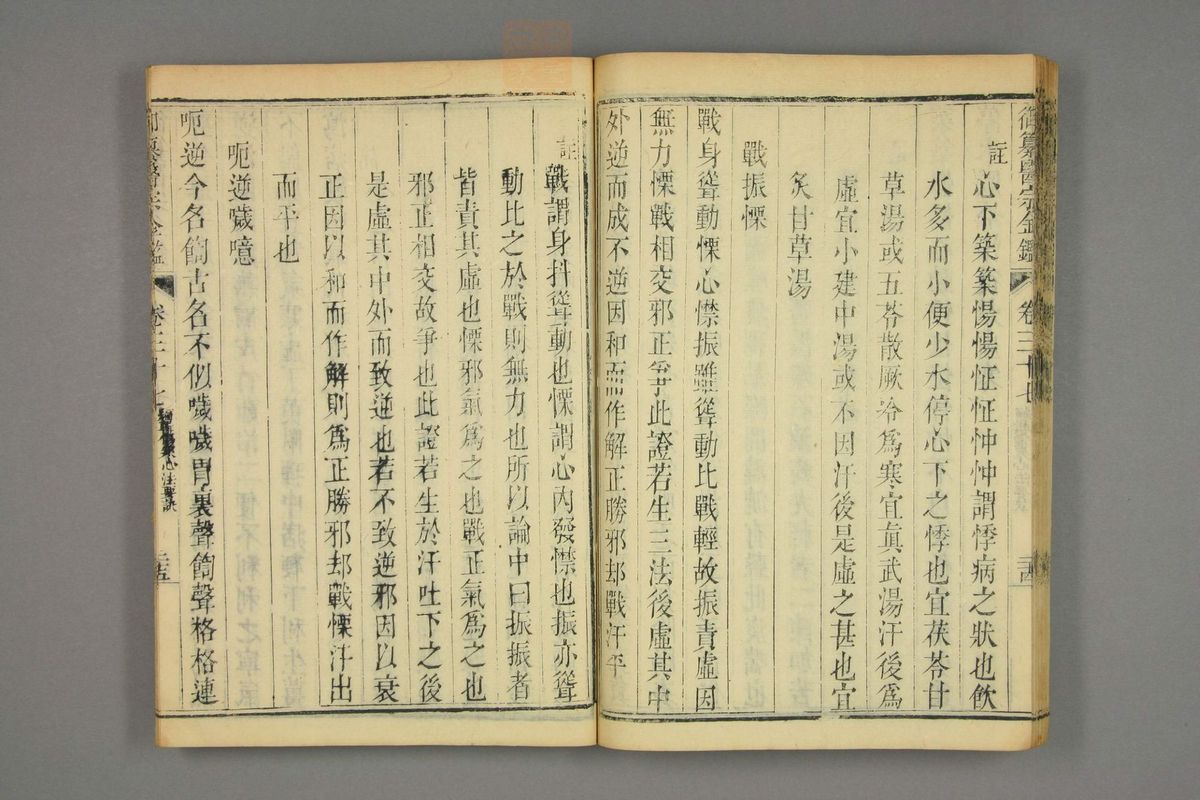 御纂醫宗金鑑 卷三十七 二十四
註 心下築築惕惕怔怔忡忡謂悸病之狀也飲
水多而小便少水停心下之悸也宜茯苓甘
草湯或五苓散厥冷為寒宜真武湯汗後為
虛宜小建中湯或不因汗後是虛之甚也宜
炙甘草湯
戰振慄
戰身聳動慄心噤振雖聳動比戰輕故振責虛因
無力慄戰相交邪正爭此證若生三法後虛其中
外逆而成不逆因和而作解正勝邪却戰汗平
註 戰謂身抖聳動也慄謂心內發噤也振亦聳
動比之於戰則無力也所以論中曰振振者
皆責其虛也慄邪氣為之也戰正氣為之也
邪正相交故爭也此證若生於汗吐下之後
是虛其中外而致逆也若不致逆邪因以衰
正因以和而作解則為正勝邪却戰慄汗出
而平也
呃逆噦噫
呃逆今名飭古名不似噦噦胃裏聲飭聲格格連
御纂醫宗金鑑 卷三十七 心法要訣 二十五